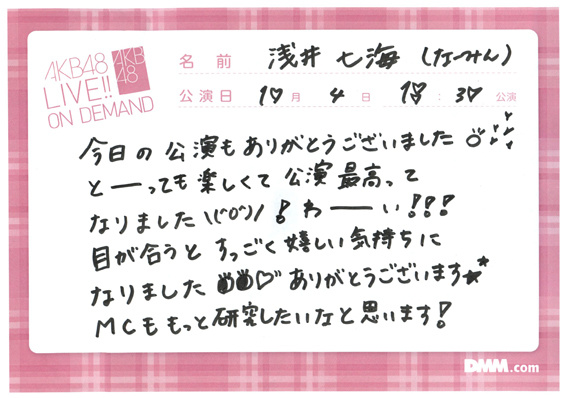 AKB48
LIVE!!
ON DEMAND
AKB
48
名前 浅井七海(なーみん)
公演日 10月 4日 18:30 公演
今日の公演もありがとうございました
とーっても楽しくて公演最高って
なりました\(^o^)/!わーい!!!
目が合うとすっごく嬉しい気持ちに
なりました♡ありがとうございます★*
MCももっと研究したいなと思います!
DMM.com